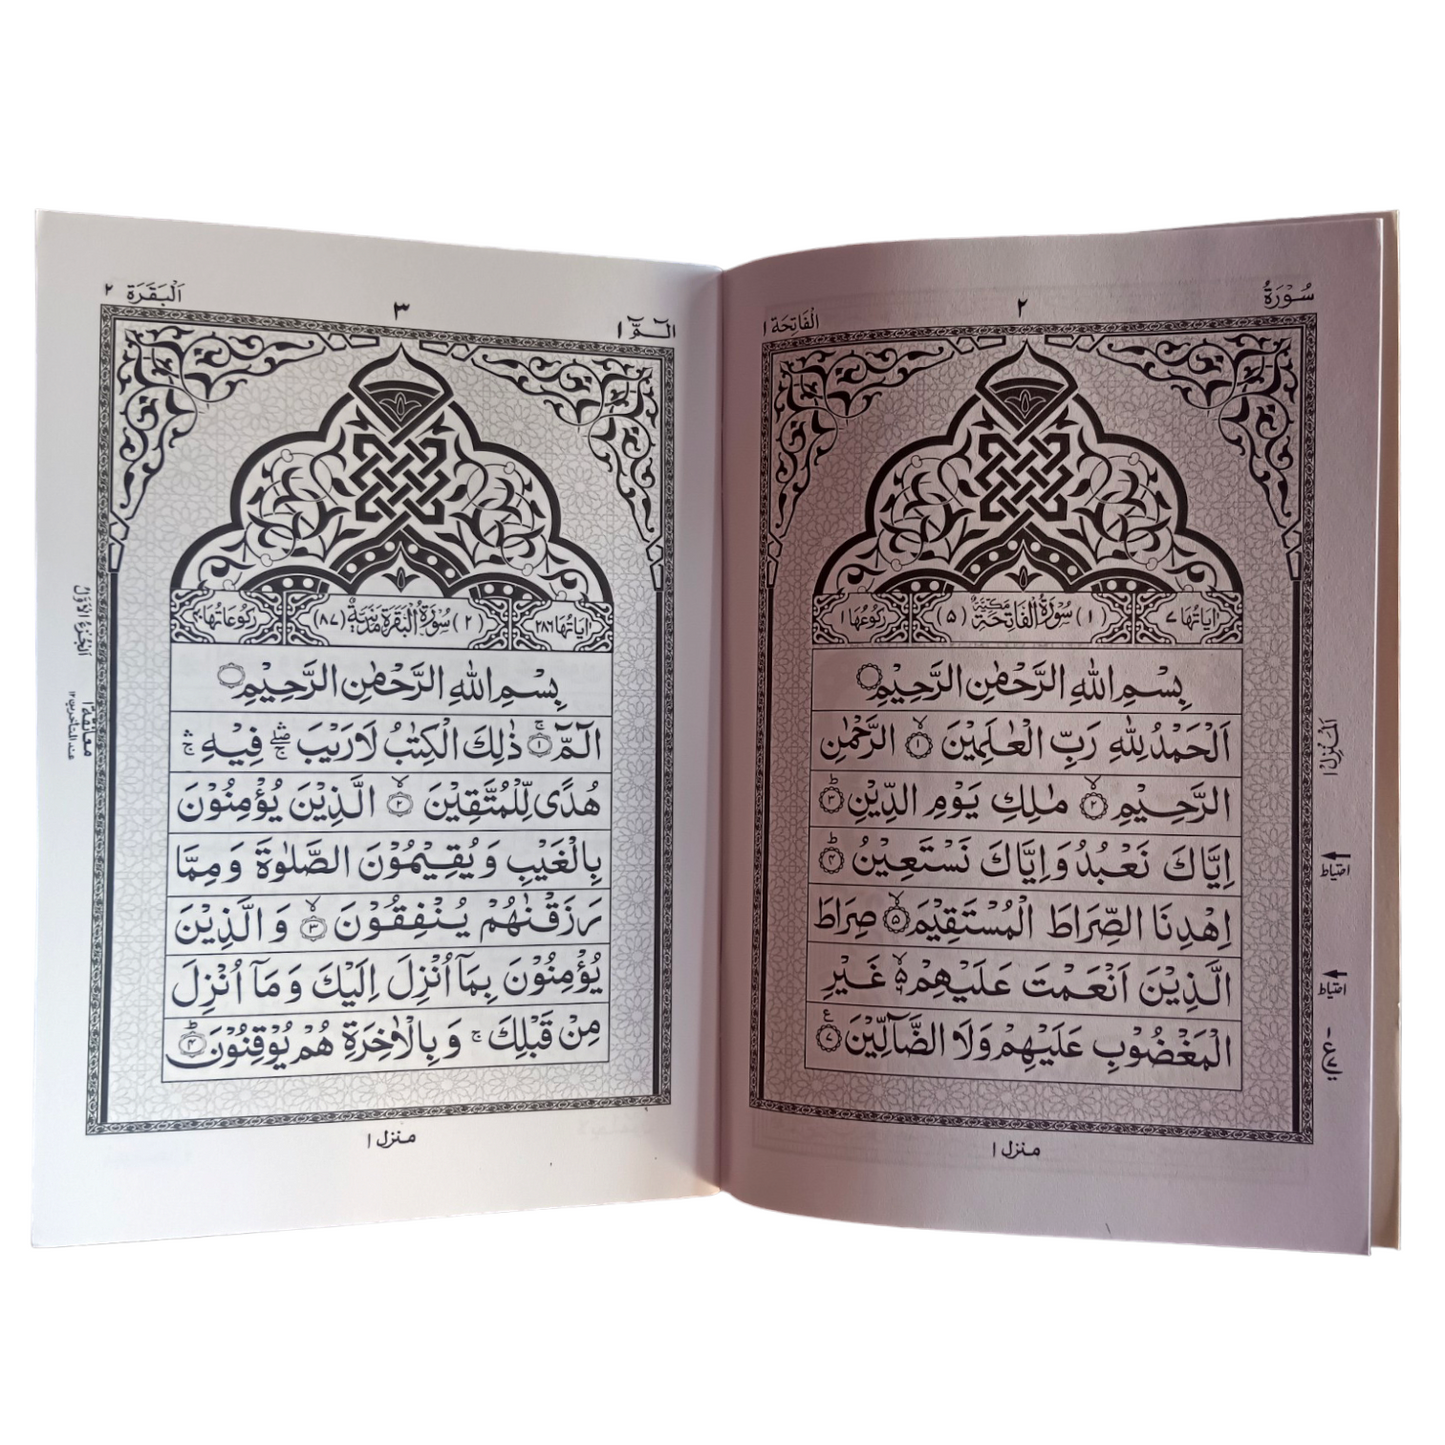 سُوْرَةُ
٢
اَلْفَاتِحَة ١
اٰيَاتُهَا ٧
(١) سُوْرَةُ الْفَاتِحَةِ مَكِّيَّةٌ (٥)
رُكُوْعُهَا ١
بِسْمِ اللهِ الرَّحْمٰنِ الرَّحِيْمِ
اَلْحَمْدُ لِلّٰهِ رَبِّ الْعٰلَمِيْنَ ۙ﴿١﴾ الرَّحْمٰنِ
الرَّحِيْمِ ۙ﴿٢﴾ مٰلِكِ يَوْمِ الدِّيْنِ ؕ﴿٣﴾
اِيَّاكَ نَعْبُدُ وَاِيَّاكَ نَسْتَعِيْنُ ؕ﴿٤﴾
اِهْدِنَا الصِّرَاطَ الْمُسْتَقِيْمَ ۙ﴿٥﴾ صِرَاطَ
الَّذِيْنَ اَنْعَمْتَ عَلَيْهِمْ ۙ۬ غَيْرِ
الْمَغْضُوْبِ عَلَيْهِمْ وَلَا الضَّآلِّيْنَ ﴿٧﴾
اَلْمَنْزِل ١
احتياط
احتياط
منزل ١
الٓـمّٓ ١
٣
اَلْبَقَرَة ٢
اٰيَاتُهَا ٢٨٦
(٢) سُوْرَةُ الْبَقَرَةِ مَدَنِيَّةٌ (٨٧)
رُكُوْعَاتُهَا ٤٠
بِسْمِ اللهِ الرَّحْمٰنِ الرَّحِيْمِ
الٓمّٓ ۚ﴿١﴾ ذٰلِكَ الْكِتٰبُ لَا رَيْبَ ۛۖۚ فِيْهِ ۛۚ
هُدًى لِّلْمُتَّقِيْنَ ۙ﴿٢﴾ الَّذِيْنَ يُؤْمِنُوْنَ
بِالْغَيْبِ وَيُقِيْمُوْنَ الصَّلٰوةَ وَمِمَّا
رَزَقْنٰهُمْ يُنْفِقُوْنَ ۙ﴿٣﴾ وَالَّذِيْنَ
يُؤْمِنُوْنَ بِمَآ اُنْزِلَ اِلَيْكَ وَمَآ اُنْزِلَ
مِنْ قَبْلِكَ ۚ وَبِالْاٰخِرَةِ هُمْ يُوْقِنُوْنَ ؕ﴿٤﴾
اَلْجُزْءُ الْاَوَّلُ
معانقة ١
عند المتاخرين ١٢
منزل ١